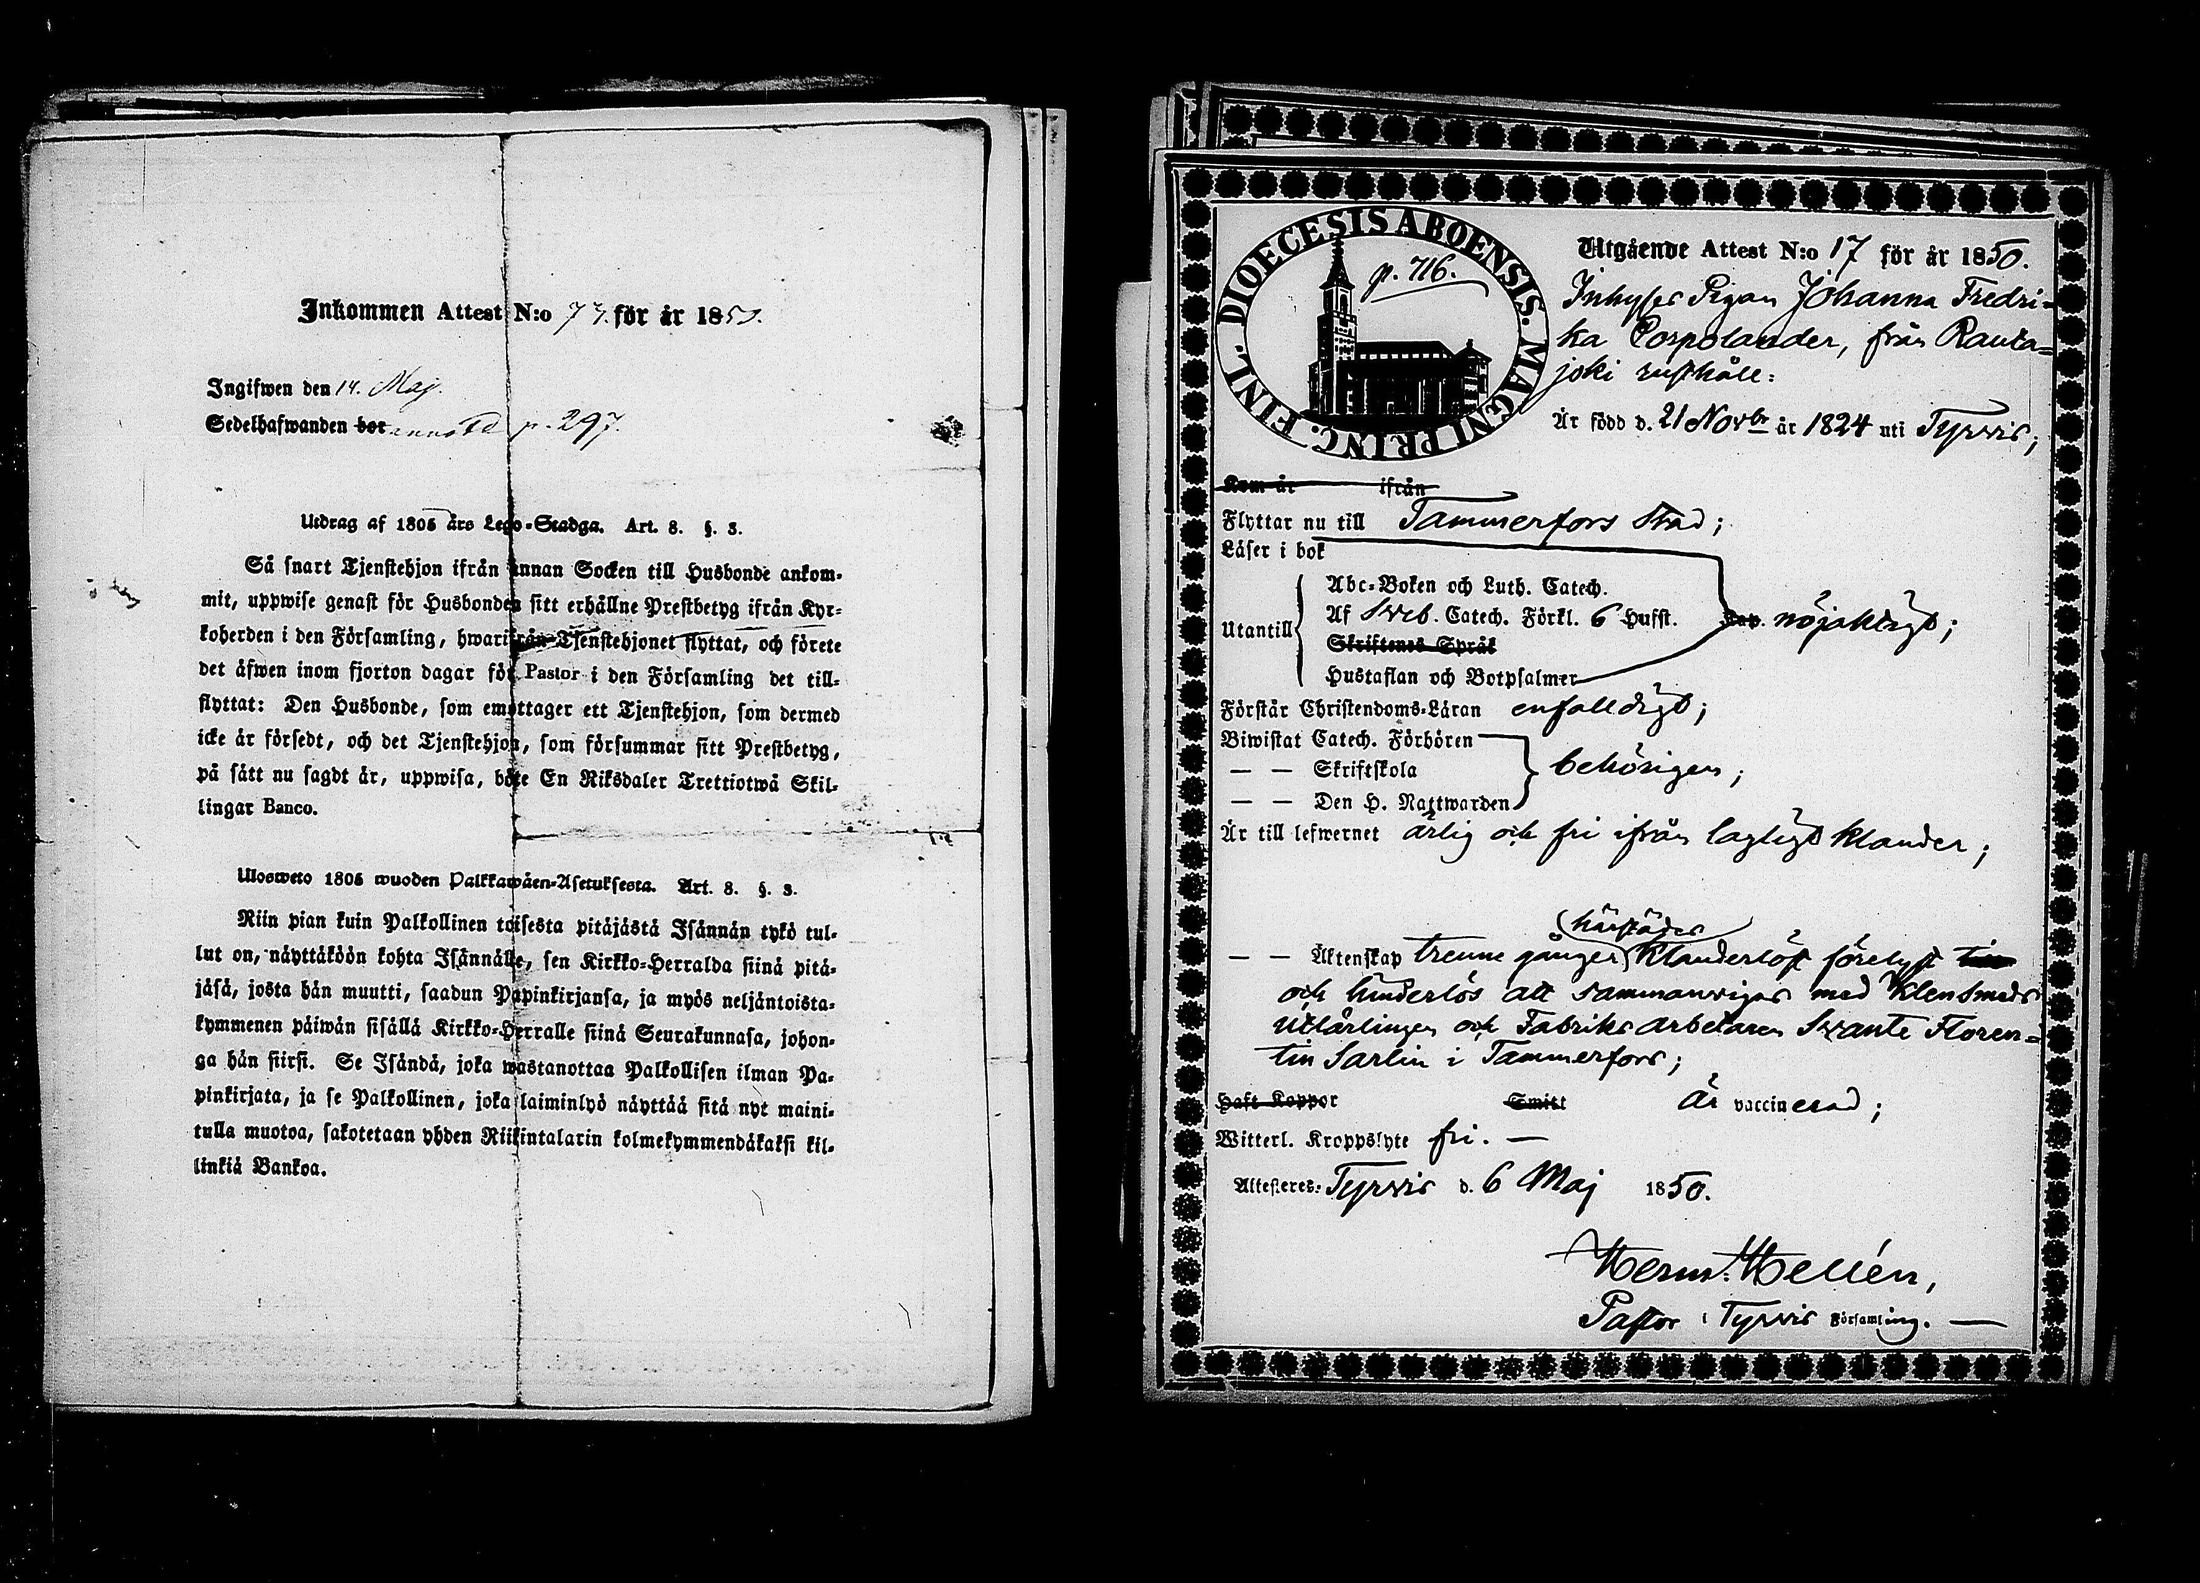 Inkommen Attest N:o 73. för år 1850.
Ingifwen den 14. Maj.
Sedelhafwanden bor annotd p. 297.
Utdrag af 1805 års Lego-Stadga. Art. 8. §. 3.
Så snart Tjenstehjon ifrån annan Socken till Husbonde ankom-
mit, uppwise genast för Husbonden sitt erhållne Prestbetyg ifrån Kyr-
koherden i den Församling, hwarifrån Tjenstehjonet flyttat, och förete
det äfwen inom fjorton dagar för Pastor i den Församling det till-
flyttat: Den Husbonde, som emottager ett Tjenstehjon, som dermed
icke är försedt, och det Tjenstehjon, som försummar sitt Prestbetyg,
på sätt nu sagdt är, uppwisa, böte En Riksdaler Trettiotwå Skil-
lingar Banco.
Ulosweto 1805 wuoden Palkkawäen-Asetuksesta. Art. 8. §. 3.
Niin pian kuin Palkollinen toisesta pitäjästä Isännän tykö tul-
lut on, näyttäköön kohta Isännälle, sen Kirkko-Herralda siinä pitä-
jäsä, josta hän muutti, saadun Papinkirjansa, ja myös neljäntoista-
kymmenen päiwän sisällä Kirkko-Herralle siinä Seurakunnasa, johon-
ga hän siirsi. Se Isändä, joka wastanottaa Palkollisen ilman Pa-
pinkirjata, ja se Palkollinen, joka laiminlyö näyttää sitä nyt maini-
tulla muotoa, sakotetaan yhden Riikintalarin kolmekymmendäkaksi kil-
linkiä Bankoa.
DIOECESIS ABOENSIS. MAGNI PRINC. FINL.
p. 716.
Utgående Attest N:o 17 för år 1850.
Inhyses Pigan Johanna Fredri-
ka Corpolander, från Rauta-
joki rusthåll:
Är född d. 21 Novbr år 1824 uti Tyrvis;
Kom år ifrån
Flyttar nu till Tammerfors Stad;
Läser i bok
Abc-Boken och Luth. Catech.
Utantill Af Sveb. Catech. Förkl. 6 Hufst. Kap. nöjaktigt;
Skriftenes Språk
Hustaflan och Botpsalmer
Förstår Christendoms-Läran enfalldigt;
Biwistat Catech. Förhören
— — Skriftskola behörigen;
— — Den H. Nattwarden
Är till lefwernet ärlig och fri ifrån lagligt klander;
härstädes
— — Äktenskap trenne gånger klanderlöst förelyst
och hinderlös att sammanvigas med Klensmeds
Utlärlingen och Fabriks arbetaren Svante Floren-
tin Sarlin i Tammerfors;
Haft Koppor Smitt Är vaccinerad;
Witterl. Kroppslyte fri. —
Attesteres: Tyrvis d. 6 Maj 1850.
Herm: Hellén,
Pastor i Tyrvis Församling. —